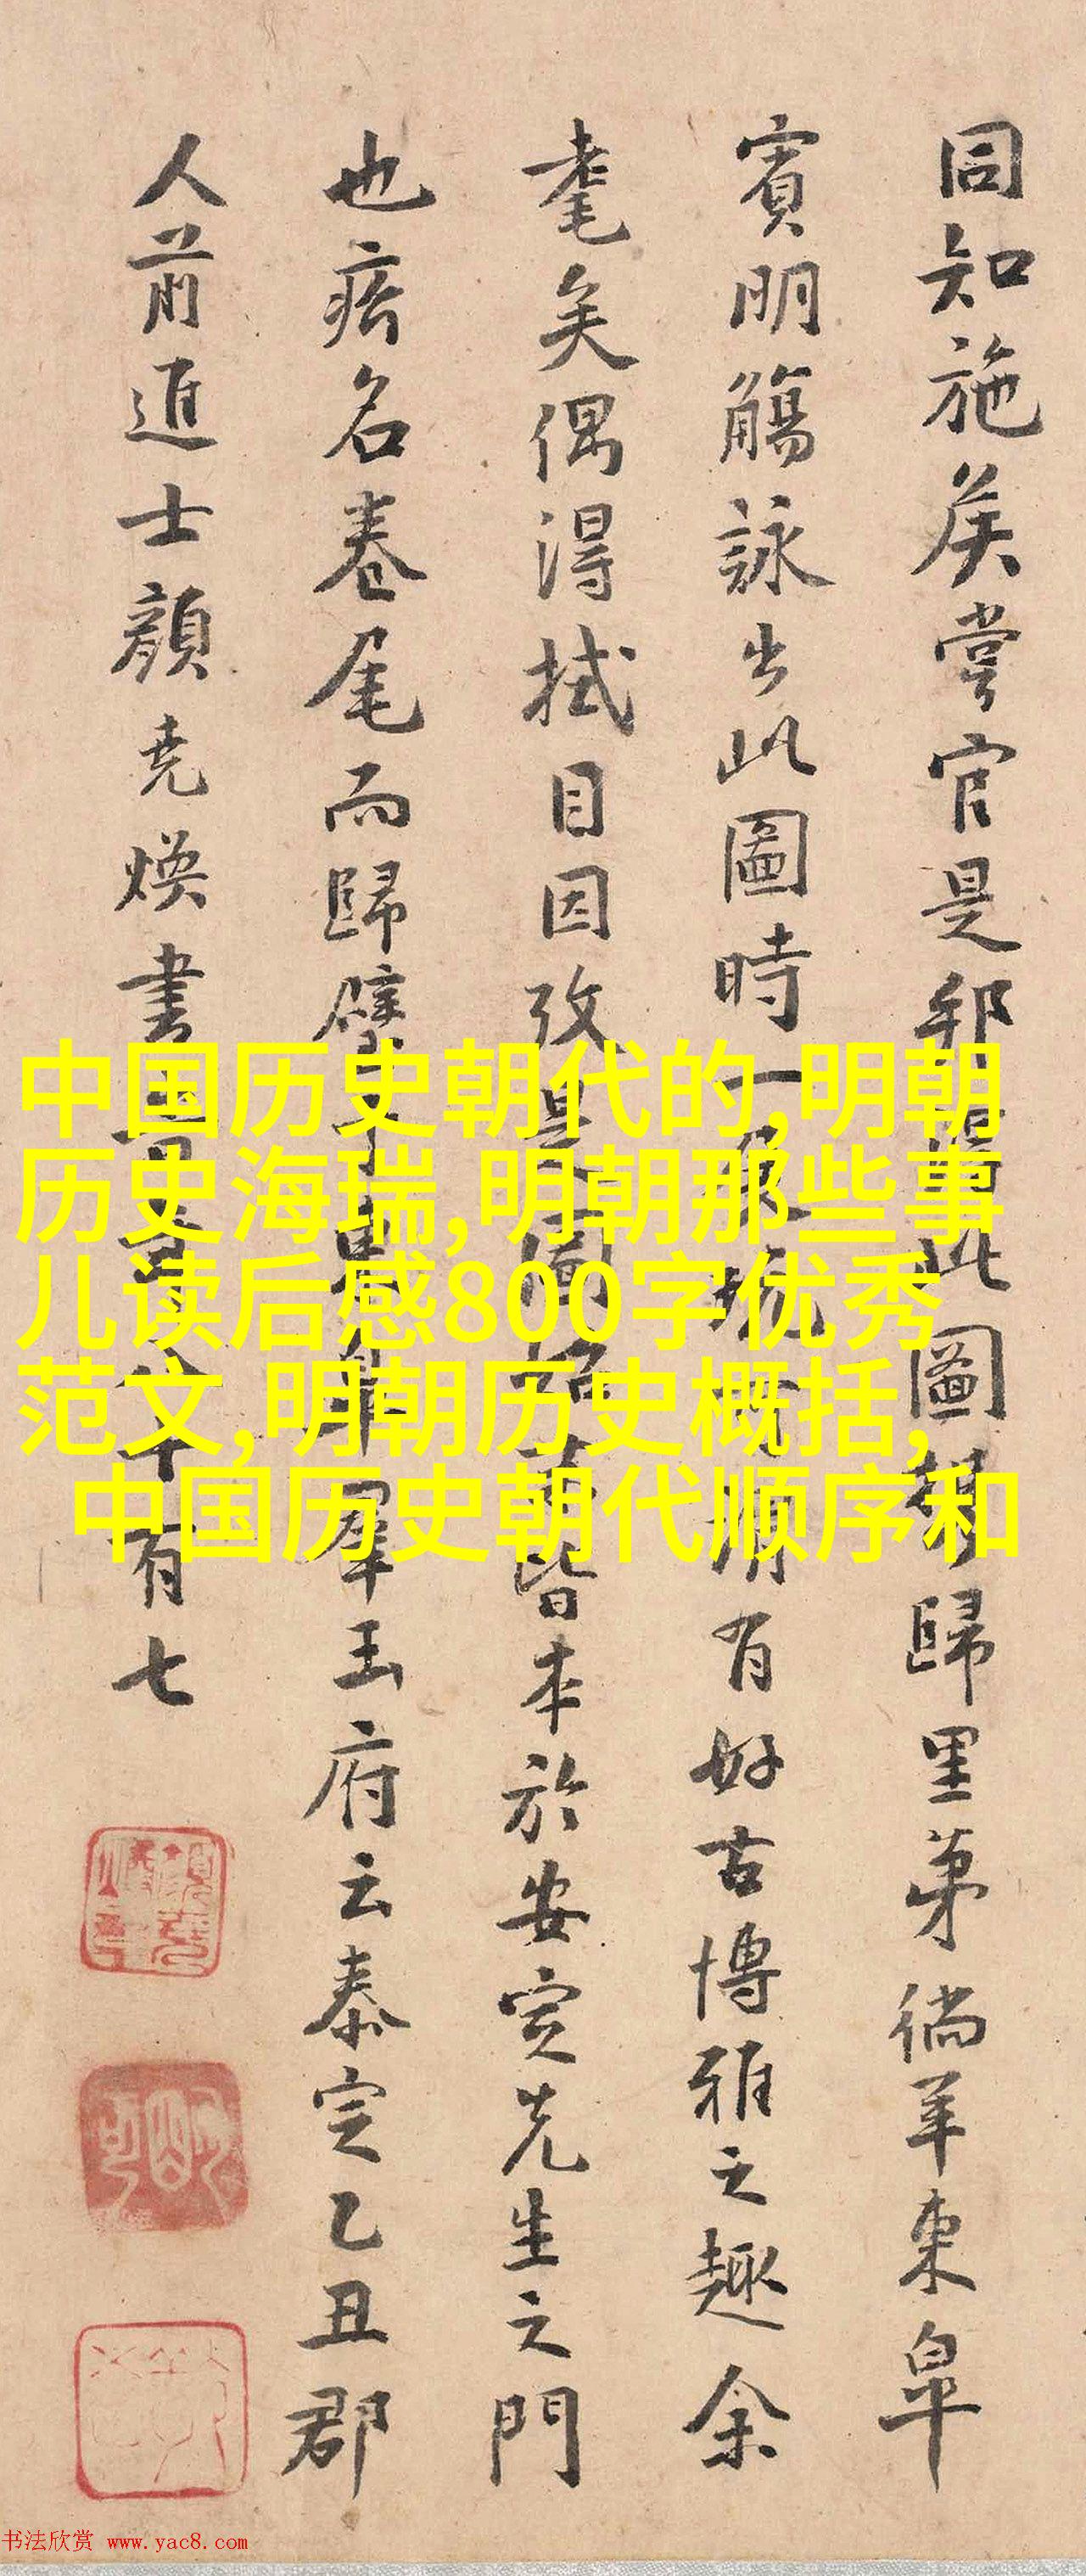 同知施侯嘗官是邦得此圖携歸里第徜羊東皋
賓明觴詠出此圖時一展玩可謂有好古博雅之趣余
耄矣偶得拭目因攷是圖皆本於安定先生之門
也疥名卷尾而歸璧于畀羣玉府云泰定乙丑郡
人前進士顏堯煥書時年八十有七
中国历史朝代的,明朝
历史海瑞,明朝那些事
儿读后感800字优秀
范文,明朝历史概括,
中国历史朝代顺序和
书法欣赏 www.yac8.com